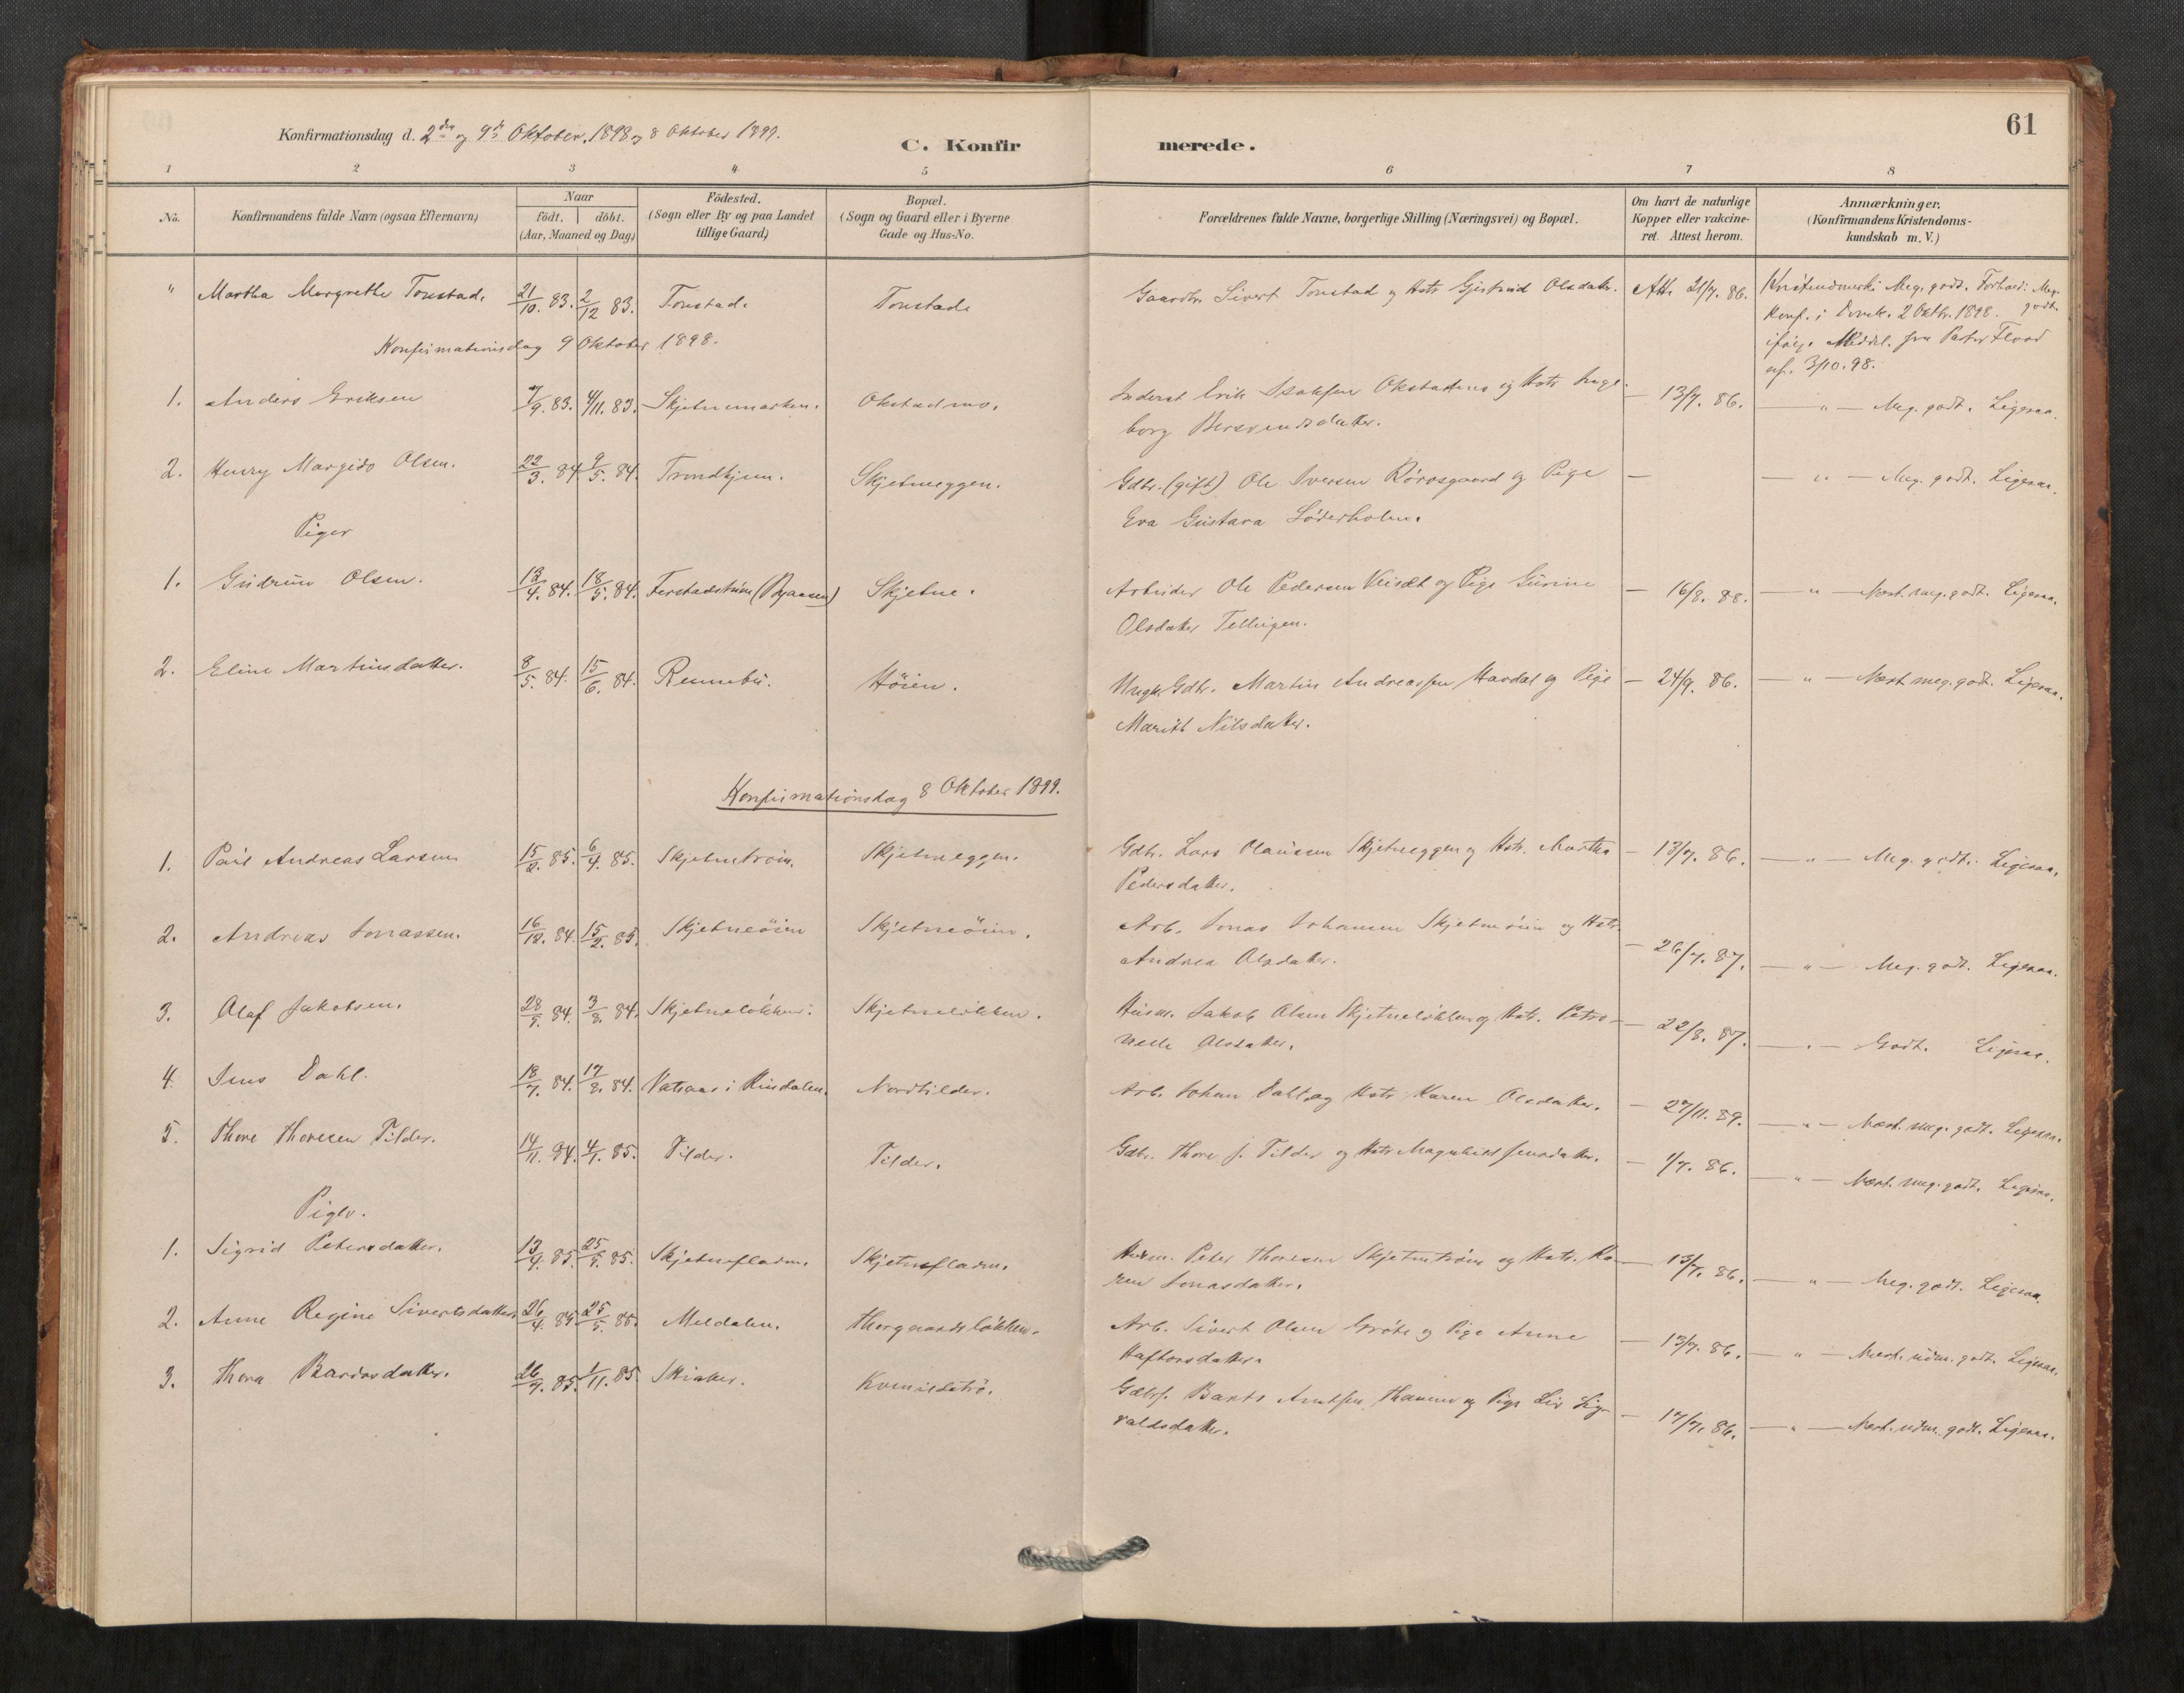 61
Konfirmationsdag d. 2den og 9de Oktober, 1898 og 8 Oktober 1899.
C. Konfirmerede.
1 2 3 4 5 6 7 8
No. Konfirmandens fulde Navn (ogsaa Efternavn) Naar födt. döbt. (Aar, Maaned og Dag) Födested. (Sogn eller By og paa Landet tillige Gaard) Bopæl. (Sogn og Gaard eller i Byerne Gade og Hus-No. Forældrenes fulde Navne, borgerlige Stilling (Næringsvei) og Bopæl. Om havt de naturlige Kopper eller vakcineret. Attest herom. Anmærkninger. (Konfirmandens Kristendomskundskab m. V.)
" Martha Margrethe Tonstad. 21/10. 83. 2/12 83. Tonstad. Tonstad Gaardbr. Sivert Tonstad og Hstr Gjertrud Olsdatr. Att. 21/7. 86. Kristendomsk: Meg. godt. Forhold: Meg. godt.
Konf. i Domk. 2 Oktbr. 1898.
ifølge Meddel. fra Pastor Flood
af. 3/10. 98.
Konfirmationsdag 9 Oktober 1898.
1. Anders Eriksen 7/9. 83. 4/11. 83. Skjetnemarken. Okstadmo. Inderst Erik Isaksen Okstadmo og Hstr Inge- — 13/7. 86. — " — Meg. godt. Ligesaa.
borg Bersvendsdatter.
2. Henry Margido Olsen. 22/3. 84 9/5. 84. Trondhjem. Skjetneggen. Gdbr. (gift) Ole Iversen Rørosgaard og Pige — — " — Meg. godt. Ligesaa.
Eva Gustava Söderholm.
Piger
1. Gudrun Olsen. 13/4. 84. 18/5. 84. Ferstadtrøen (Byaasen) Skjetne. Arbeider Ole Pedersen Veisæt og Pige Gurine — 16/8. 88. — " — Næst. meg. godt. Ligesaa.
Olsdatter Tellugen.
2. Eline Martinsdatter. 8/5. 84. 15/6. 84. Rennebu. Höien. Ungk. Gdbr. Martin Andreassen Havdal og Pige — 24/9. 86. — " — Næst meg. godt. Ligesaa.
Marit Nilsdatter.
Konfirmationsdag 8 Oktober 1899.
1. Paul Andreas Larsen 15/2. 85. 6/4. 85. Skjetnetrøen. Skjetneggen. Gdbr. Lars Olaussen Skjetneggen og Hstr. Martha — 13/7. 86. — " — Meg. godt. Ligesaa.
Pedersdatter.
2. Andreas Jonassen. 16/12. 84. 15/2. 85. Skjetneöien Skjetneöien. Arb. Jonas Johansen Skjetneöien og Hstr — 26/7. 87. — " — Meg. godt. Ligesaa.
Andrea Olsdatter.
3. Olaf Jakobsen. 28/5. 84. 3/8. 84. Skjetneløkken. Skjetneløkken. Husm. Jakob Olsen Skjetneløkken og Hstr. Petro- — 22/8. 87. — " — Godt. Ligesaa.
nelle Olsdatter.
4. Jens Dahl. 18/7. 84. 17/8. 84. Vatsaas i Rindalen. Nordtilder. Arb. Johan Dahl og Hstr Karen Olsdatter. — 27/11. 89. — " — Næst. meg. godt. Ligesaa.
5. Thore Thoresen Tilder. 14/11. 84. 4/1. 85. Tilder. Tilder. Gdbr. Thore J. Tilder og Hstr Magnhild Jensdatter. — 1/7. 86. — " — Næst. meg. godt. Ligesaa.
Piger.
1. Sigrid Petersdatter. 13/4. 85. 25/5. 85. Skjetnefladen. Skjetnefladen. Husm. Peter Thoresen Skjetnetrøen og Hstr. Ka- — 13/7. 86. — " — Meg. godt. Ligesaa.
ren Jonasdatter.
2. Anne Regine Sivertsdatter 26/4. 85. 25/5. 85. Meldalen. Thorgaardsløkken. Arb. Sivert Olsen Grøte og Pige Anne — 13/7. 86. — " — Næst. udm. godt. Ligesaa.
Haftorsdatter.
3. Thora Bardosdatter. 26/9. 85. 1/11. 85. Skiaker. Kvenildstrø. Gdbrs. Bardo Arntsen og Pige Liv Sig- — 17/7. 86. — " — Næst. udm. godt. Ligesaa.
valdsdatter.